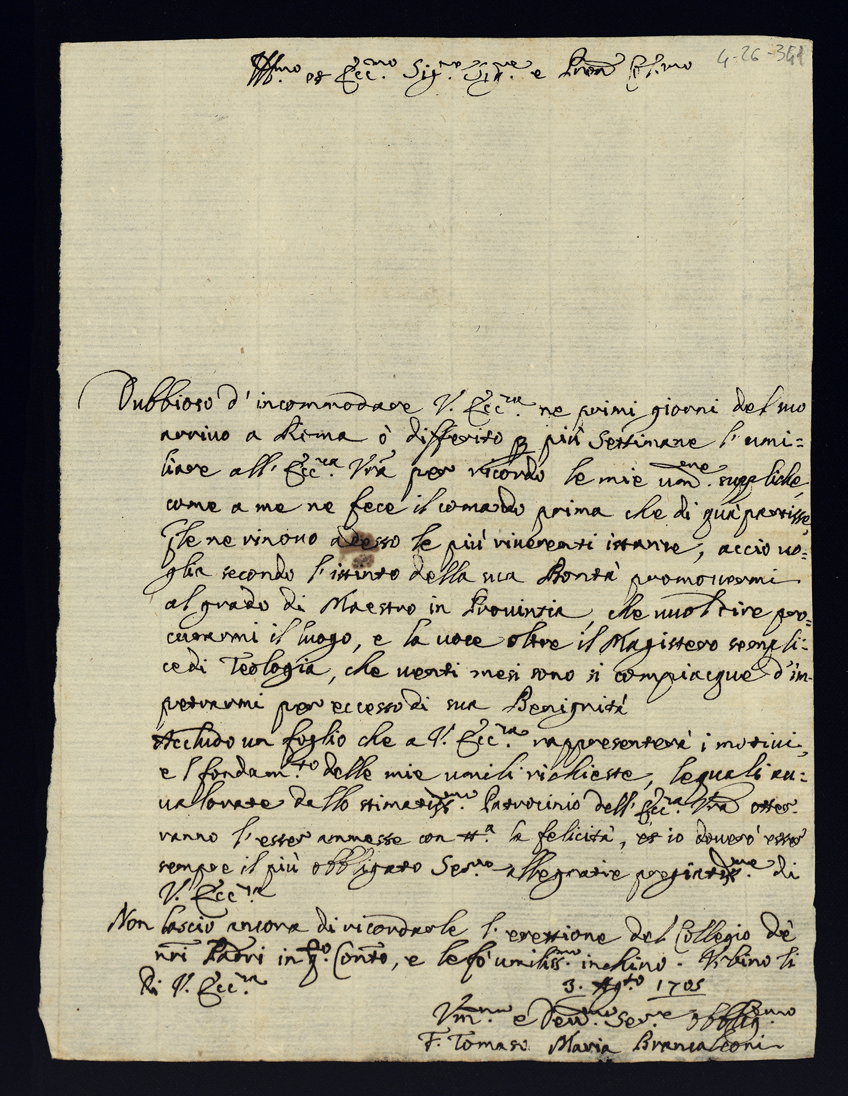 4-26-341
Ill.mo et Ecc.mo Sig.re Sig.re e Pron Col.mo
Dubbioso d'incommodare V. Ecc.za ne primi giorni del suo
arrivo a Roma ò differito p più Settimane l'umi=
liare all'Ecc.za Vra per ricordo le mie um.me suppliche,
come a me ne fece il comando prima che di quà partisse,
Gle ne rinovo adesso le più riverenti istanze, acciò vo=
glia secondo l'istinto della sua Bontà promovermi
al grado di Maestro in Provintia, che vuol dire pro=
curarmi il luogo, e la voce oltre il Magistero sempli=
ce di Teologia, che venti mesi sono si compiacque d'im=
petrarmi per eccesso di sua Benignità
Accludo un foglio che a V. Ecc.za rappresenterà i motivi,
e 'l fondam.to delle mie umili richieste, le quali av=
valorate dallo stimatiss.mo Patrocinio dell'Ecc.za Vra otter=
ranno l'esser ammesse con la felicità, et io doverò esser
sempre il più obbligato Ser.re alle gratie pregiatiss.me di
V. Ecc.za
Non lascio ancora di ricordarle l'erettione del Collegio de'
nri Padri in q.o Conto, e le fò umiliss.mo inchino. Urbino li
Di V. Ecc.za
3. Ag.to 1705
Um.mo e Dev.mo Ser.re Obblig.mo
F. Tomaso Maria Brancaleoni